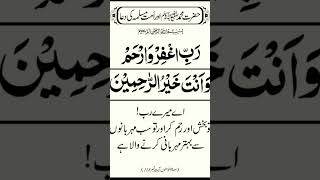 حضرت محمد ﷺ اور امت مسلمہ کی دعا
بِسْمِ اللّٰهِ الرَّحْمٰنِ الرَّحِيْمِ
رَبِّ اغْفِرْ وَارْحَمْ
وَاَنْتَ خَيْرُ الرّٰحِمِيْنَ
اے میرے رب!
تو بخش اور رحم کر اور تو سب مہربانوں
سے بہتر مہربانی کرنے والا ہے